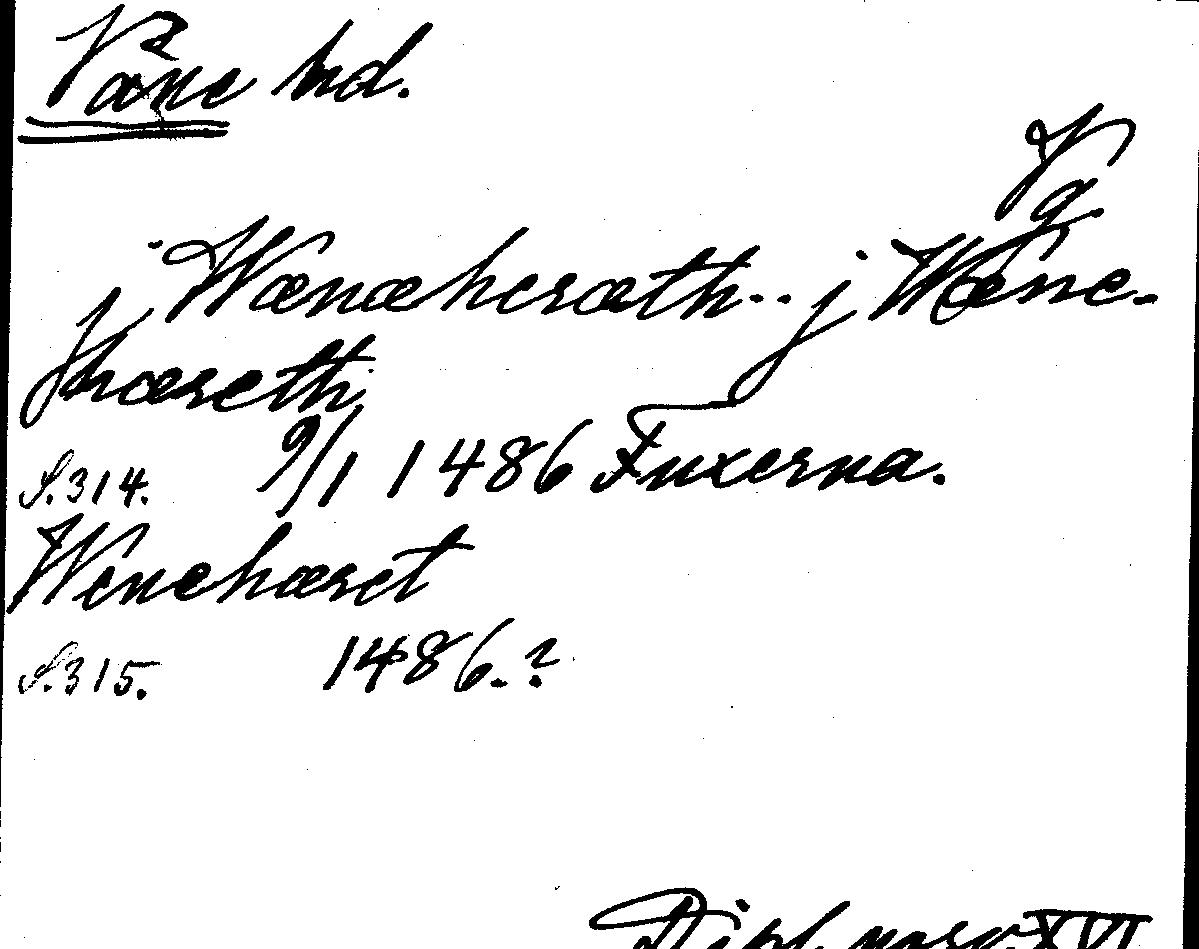 Våne hd.
Vg.
j Wænæheræth.. j Wæne-
hæreth
S.314. 9/1 1486 Fuxerna.
Wenehæret
S.315. 1486.?
Dipl. norv. XVI